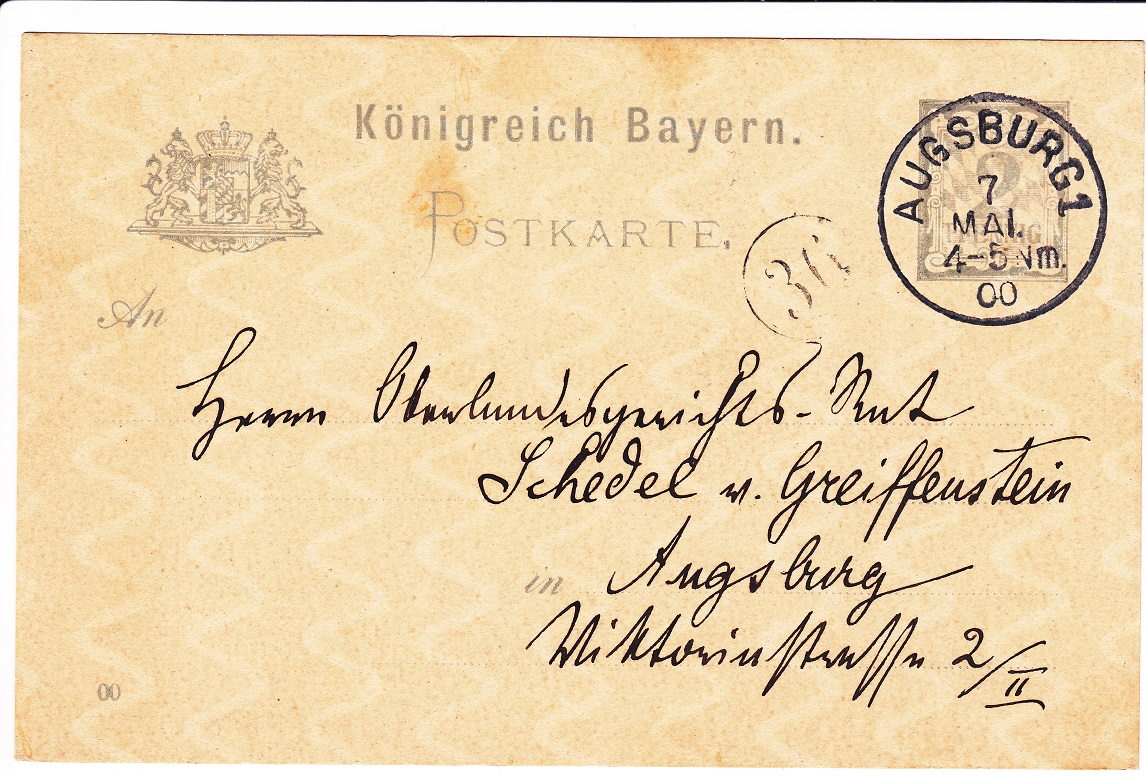 Königreich Bayern.
POSTKARTE.
AUGSBURG 1
7
MAI.
4-5 Nm.
00
2
36
An
Herrn Oberlandesgerichts-Rat
Schedel v. Greiffenstein
in Augsburg
Viktoriastrasse 2/II
00